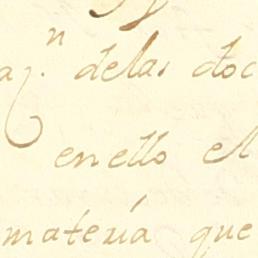 delas doc
enello el
materia que